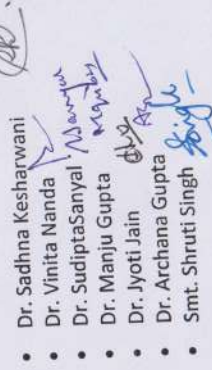 • Dr. Sadhna Kesharwani
• Dr. Vinita Nanda
• Dr. SudiptaSanyal
• Dr. Manju Gupta
• Dr. Jyoti Jain
• Dr. Archana Gupta
• Smt. Shruti Singh